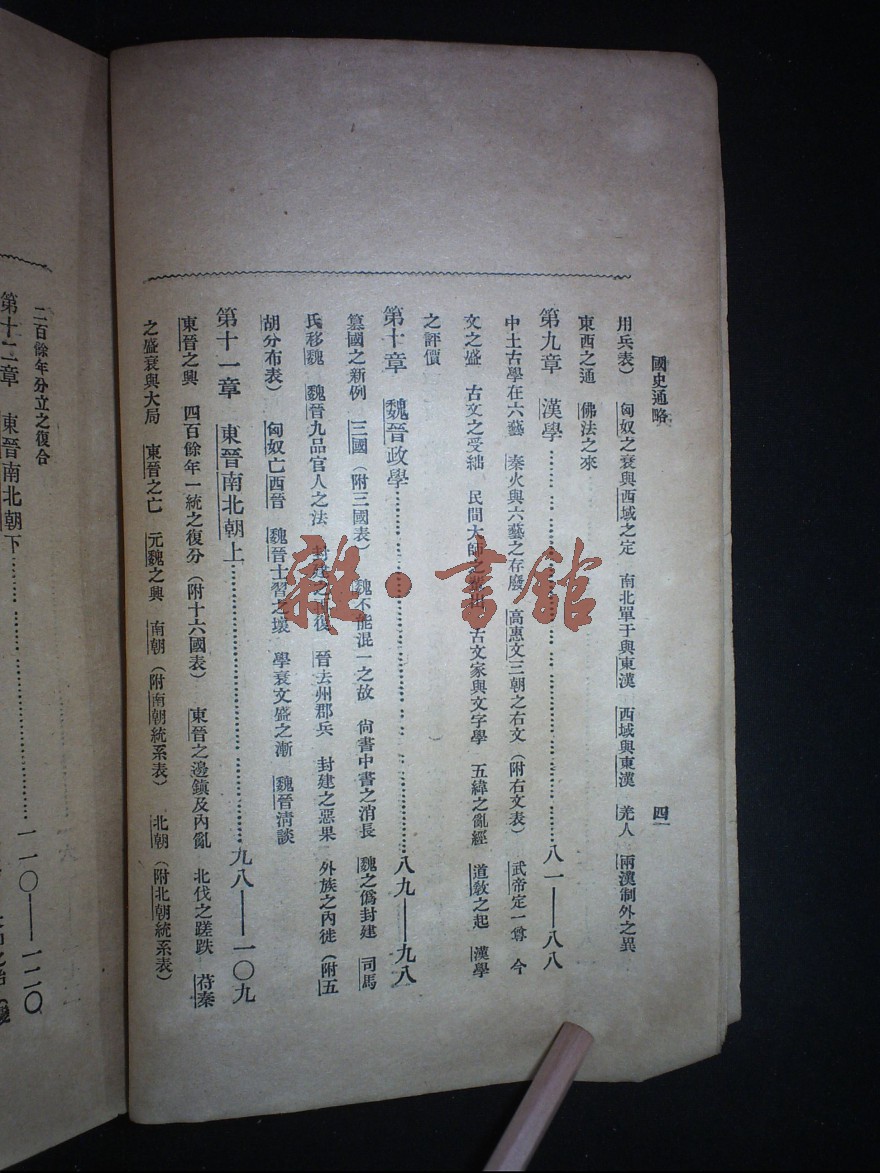 國史通略
四
用兵表） 匈奴之衰與西域之定 南北單于與東漢 西域與東漢 羌人 兩漢制外之異
東西之通 佛法之來
第九章 漢學 八一——八八
中土古學在六藝 秦火與六藝之存廢 高惠文三朝之右文（附右文表） 武帝定一尊 今
文之盛 古文之受絀 民間大師之 古文家與文字學 五緯之亂經 道教之起 漢學
之評價
第十章 魏晉政學 八九——九八
篡國之新例 三國（附三國表） 魏不能混一之故 尚書中書之消長 魏之僞封建 司馬
氏移魏 魏晉九品官人之法 封建之 復 晉去州郡兵 封建之惡果 外族之內徙（附五
胡分布表） 匈奴亡西晉 魏晉士習之壞 學衰文盛之漸 魏晉清談
第十一章 東晉南北朝上 九八——一〇九
東晉之興 四百餘年一統之復分（附十六國表） 東晉之邊鎮及內亂 北伐之蹉跌 苻秦
之盛衰與大局 東晉之亡 元魏之興 南朝（附南朝統系表） 北朝（附北朝統系表）
二百餘年分立之復合
第十二章 東晉南北朝下 一一〇——一二〇
雜·書館